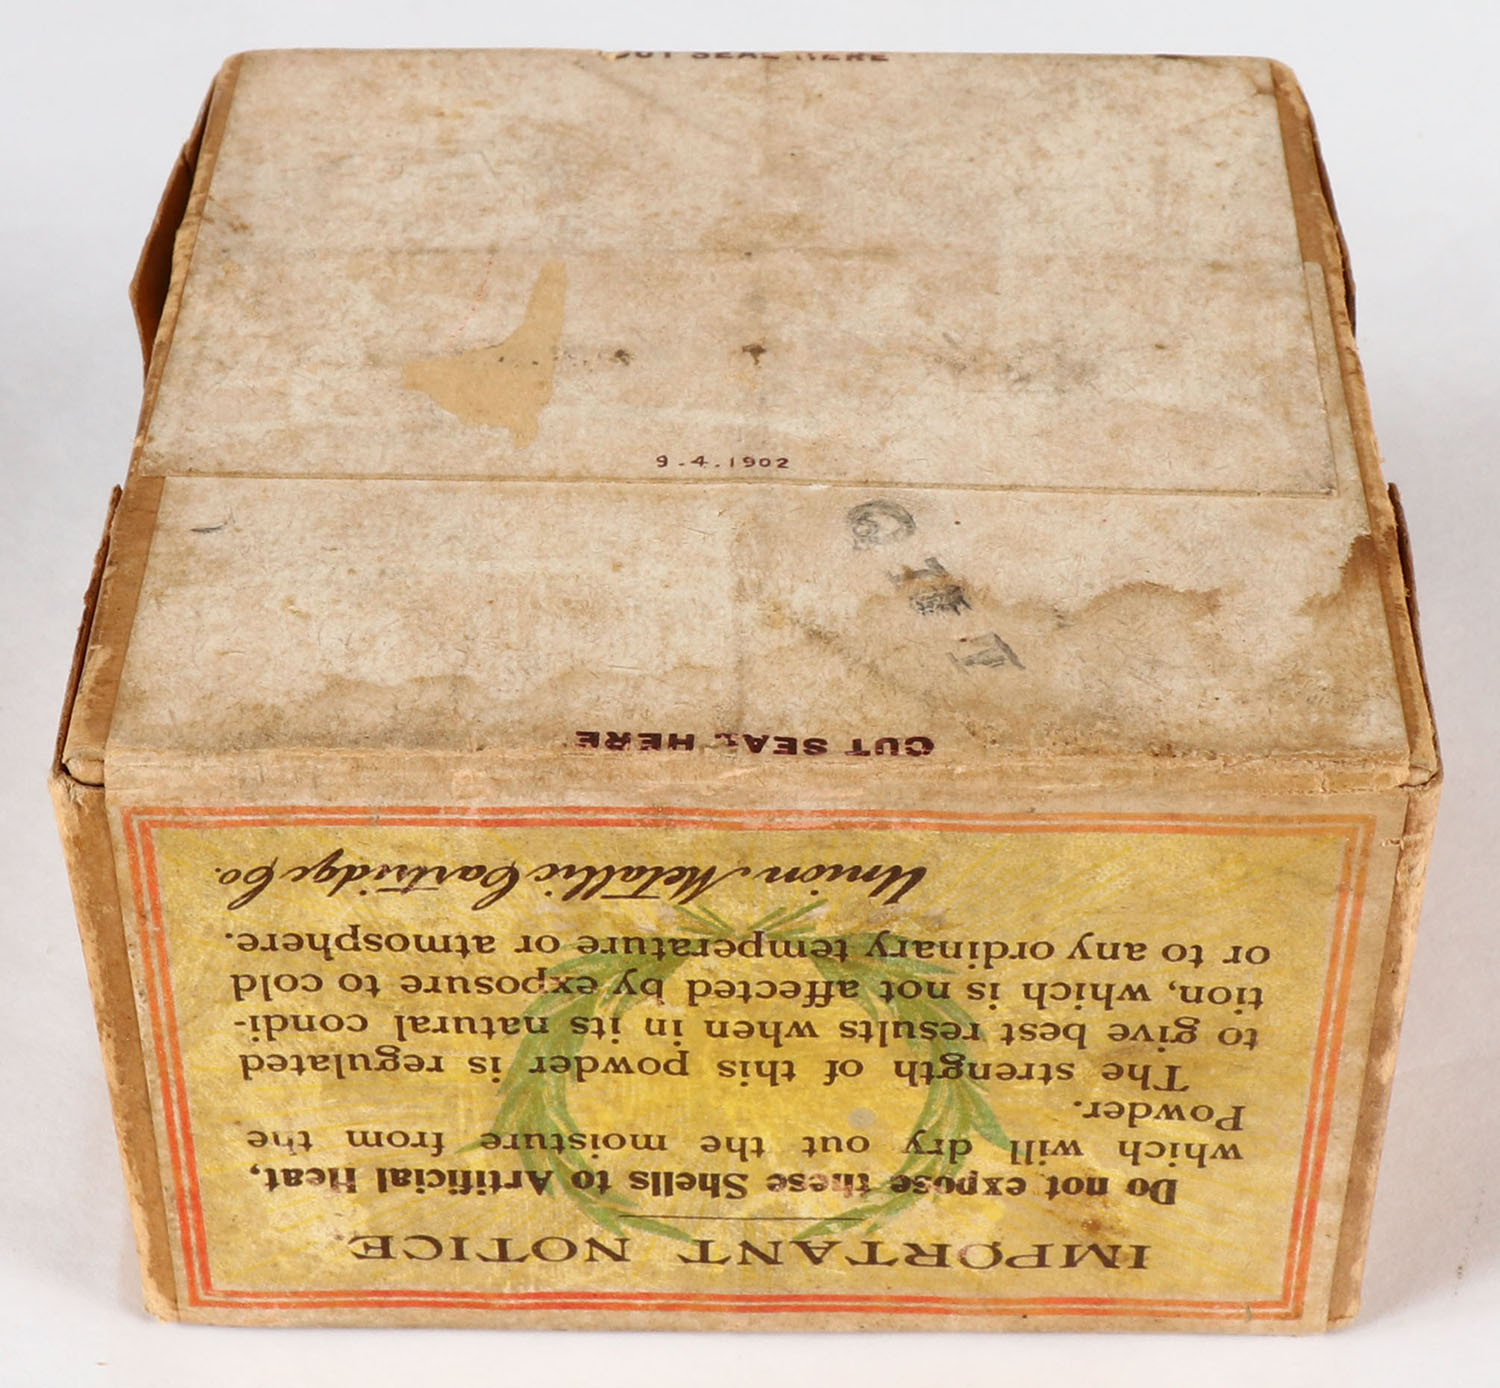 CUT SEAL HERE
9.4.1902
CUT SEAL HERE
IMPORTANT NOTICE.
Do not expose these Shells to Artificial Heat,
which will dry out the moisture from the
Powder.
The strength of this powder is regulated
to give best results when in its natural condi-
tion, which is not affected by exposure to cold
or to any ordinary temperature or atmosphere.
Union Metallic Cartridge Co.